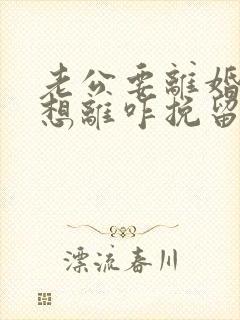 老公要離婚
想離咋挽留
漂流春川